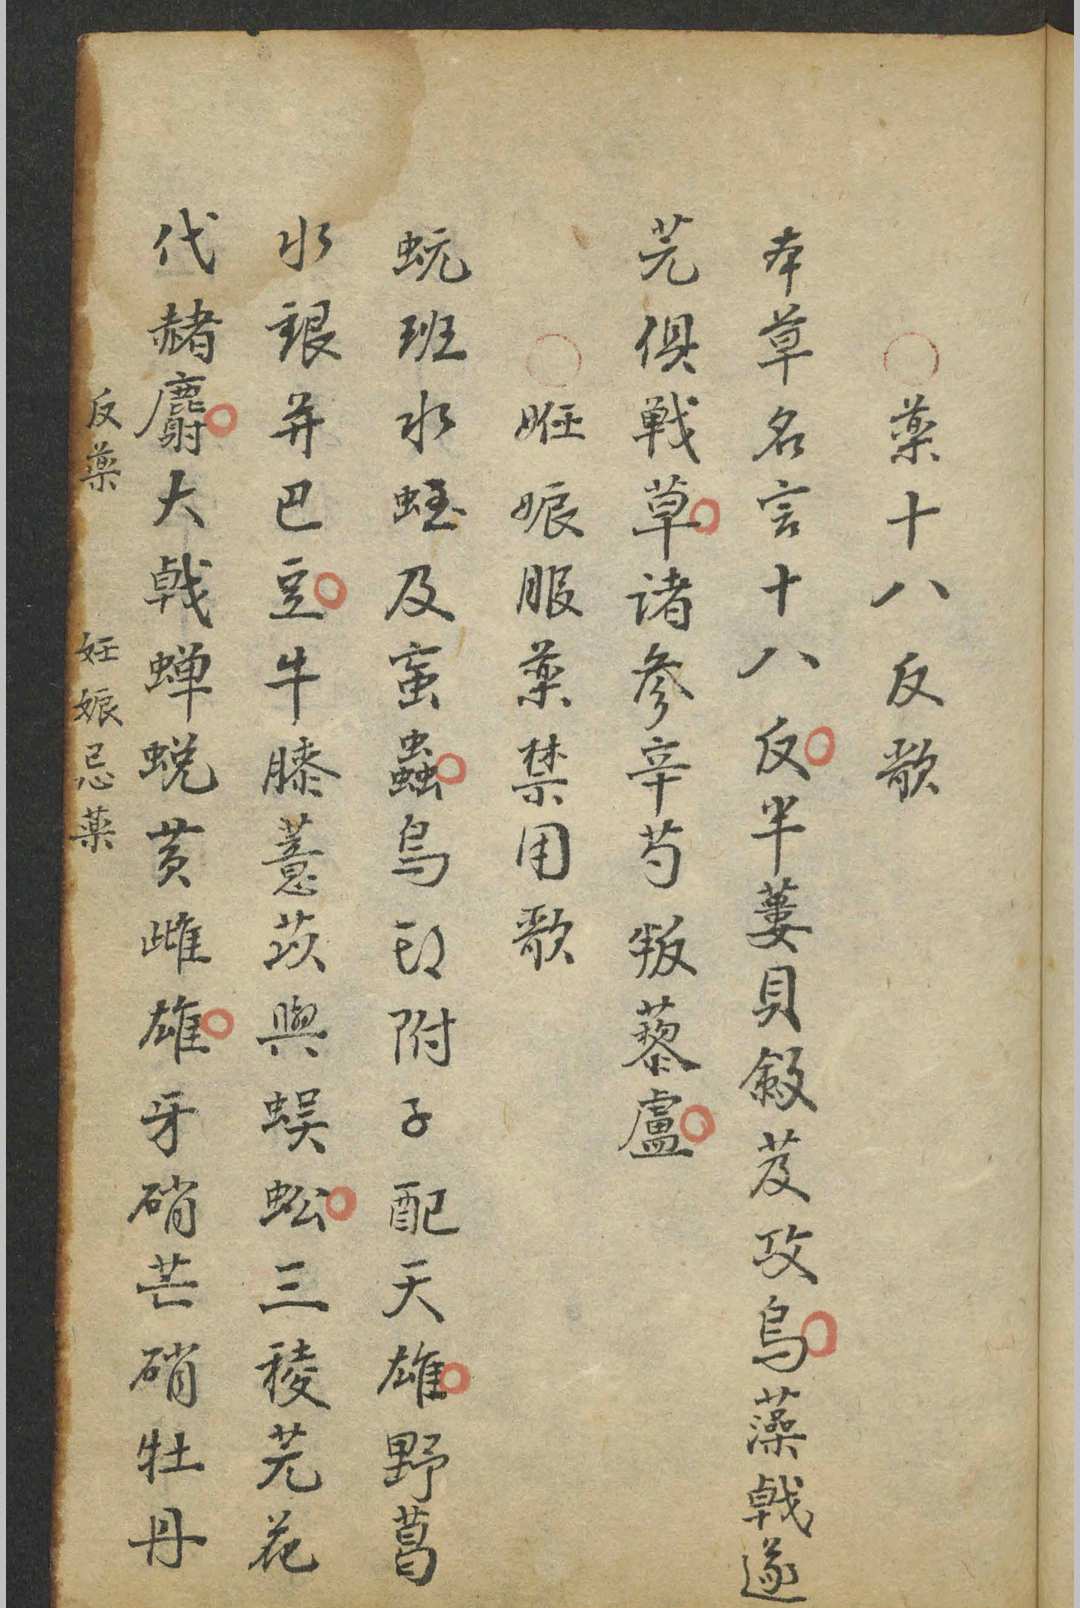 藥十八反歌
本草名言十八反半蔞貝蘞芨攻烏藻戟遂
芫俱戰草諸參辛芍叛藜蘆
妊娠服藥禁用歌
蚖班水蛭及䖟蟲烏頭附子配天雄野葛
水銀并巴豆牛膝薏苡與蜈蚣三稜芫花
代赭麝大戟蟬蛻黃雌雄牙硝芒硝牡丹
反藥　妊娠忌藥